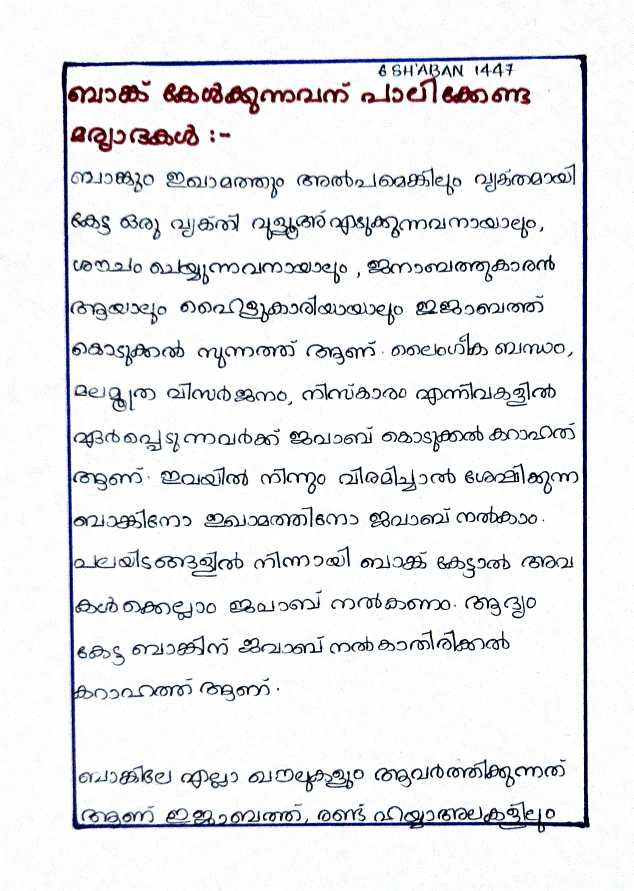 6 SH'ABAN 1447
ബാങ്ക് കേൾക്കുന്നവന് പാലിക്കേണ്ട
മര്യാദകൾ :-
ബാങ്കും ഇഖാമത്തും അൽപമെങ്കിലും വ്യക്തമായി
കേട്ട ഒരു വ്യക്തി വുളൂഅ് എടുക്കുന്നവനായാലും,
ശൗചം ചെയ്യുന്നവനായാലും, ജനാബത്തുകാരൻ
ആയാലും ഹൈളുകാരിയായാലും ഇജാബത്ത്
കൊടുക്കൽ സുന്നത്ത് ആണ്. ലൈംഗീക ബന്ധം,
മലമൂത്ര വിസർജനം, നിസ്കാരം എന്നിവകളിൽ
ഏർപ്പെടുന്നവർക്ക് ജവാബ് കൊടുക്കൽ കറാഹത്
ആണ്. ഇവയിൽ നിന്നും വിരമിച്ചാൽ ശേഷിക്കുന്ന
ബാങ്കിനോ ഇഖാമത്തിനോ ജവാബ് നൽകാം.
പലയിടങ്ങളിൽ നിന്നായി ബാങ്ക് കേട്ടാൽ അവ
കൾക്കെല്ലാം ജവാബ് നൽകണം. ആദ്യം
കേട്ട ബാങ്കിന് ജവാബ് നൽകാതിരിക്കൽ
കറാഹത്ത് ആണ്.
ബാങ്കിലേ എല്ലാ ഖൗലുകളും ആവർത്തിക്കുന്നത്
ആണ് ഇജാബത്ത്, രണ്ട് ഹയ്യാഅലകളിലും